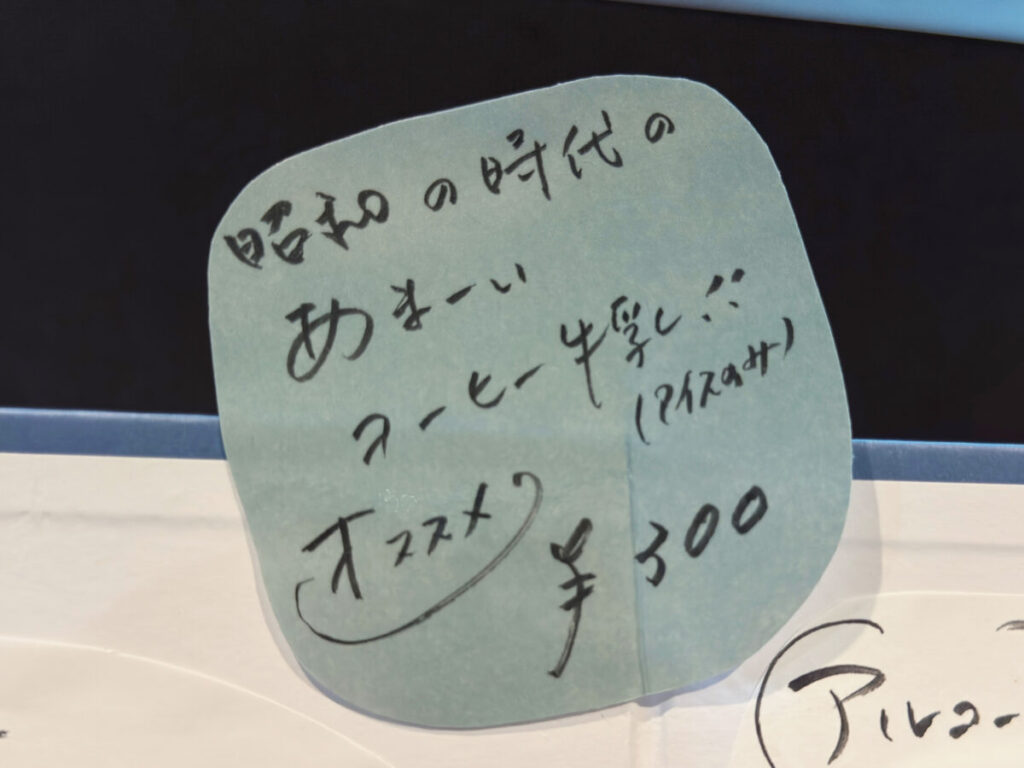 昭和の時代の
あまーい
コーヒー牛乳!!
(アイスのみ)
オススメ
¥300
アルコー